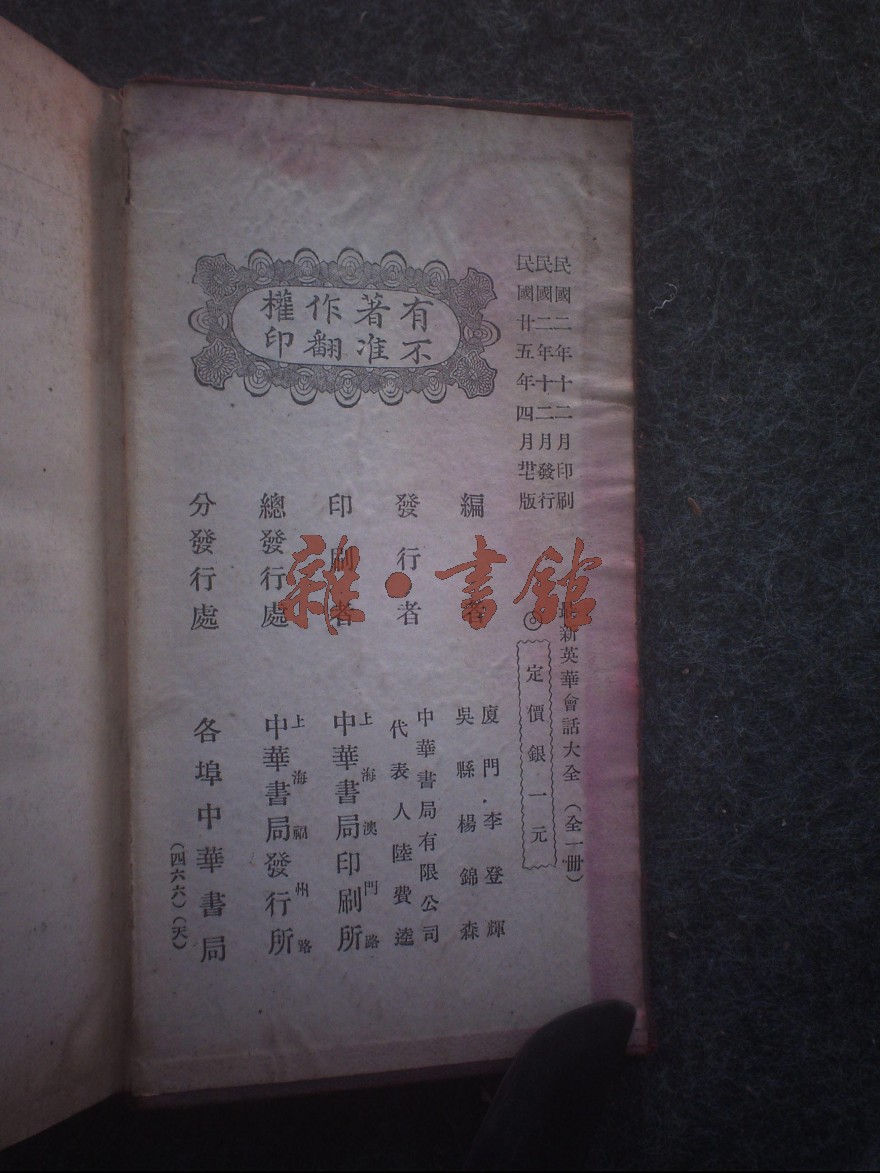 民國二年十二月印刷
民國二年十二月發行
民國廿五年四月廿七版
最新英華會話大全（全一册）
◎定價銀一元
有著作權
不准翻印
編者
廈門李登輝
吳縣楊錦森
發行者
中華書局有限公司
代表人陸費逵
印刷者
上海澳門路
中華書局印刷所
總發行處
上海福州路
中華書局發行所
分發行處
各埠中華書局
（四六六）（天）
雜·書館